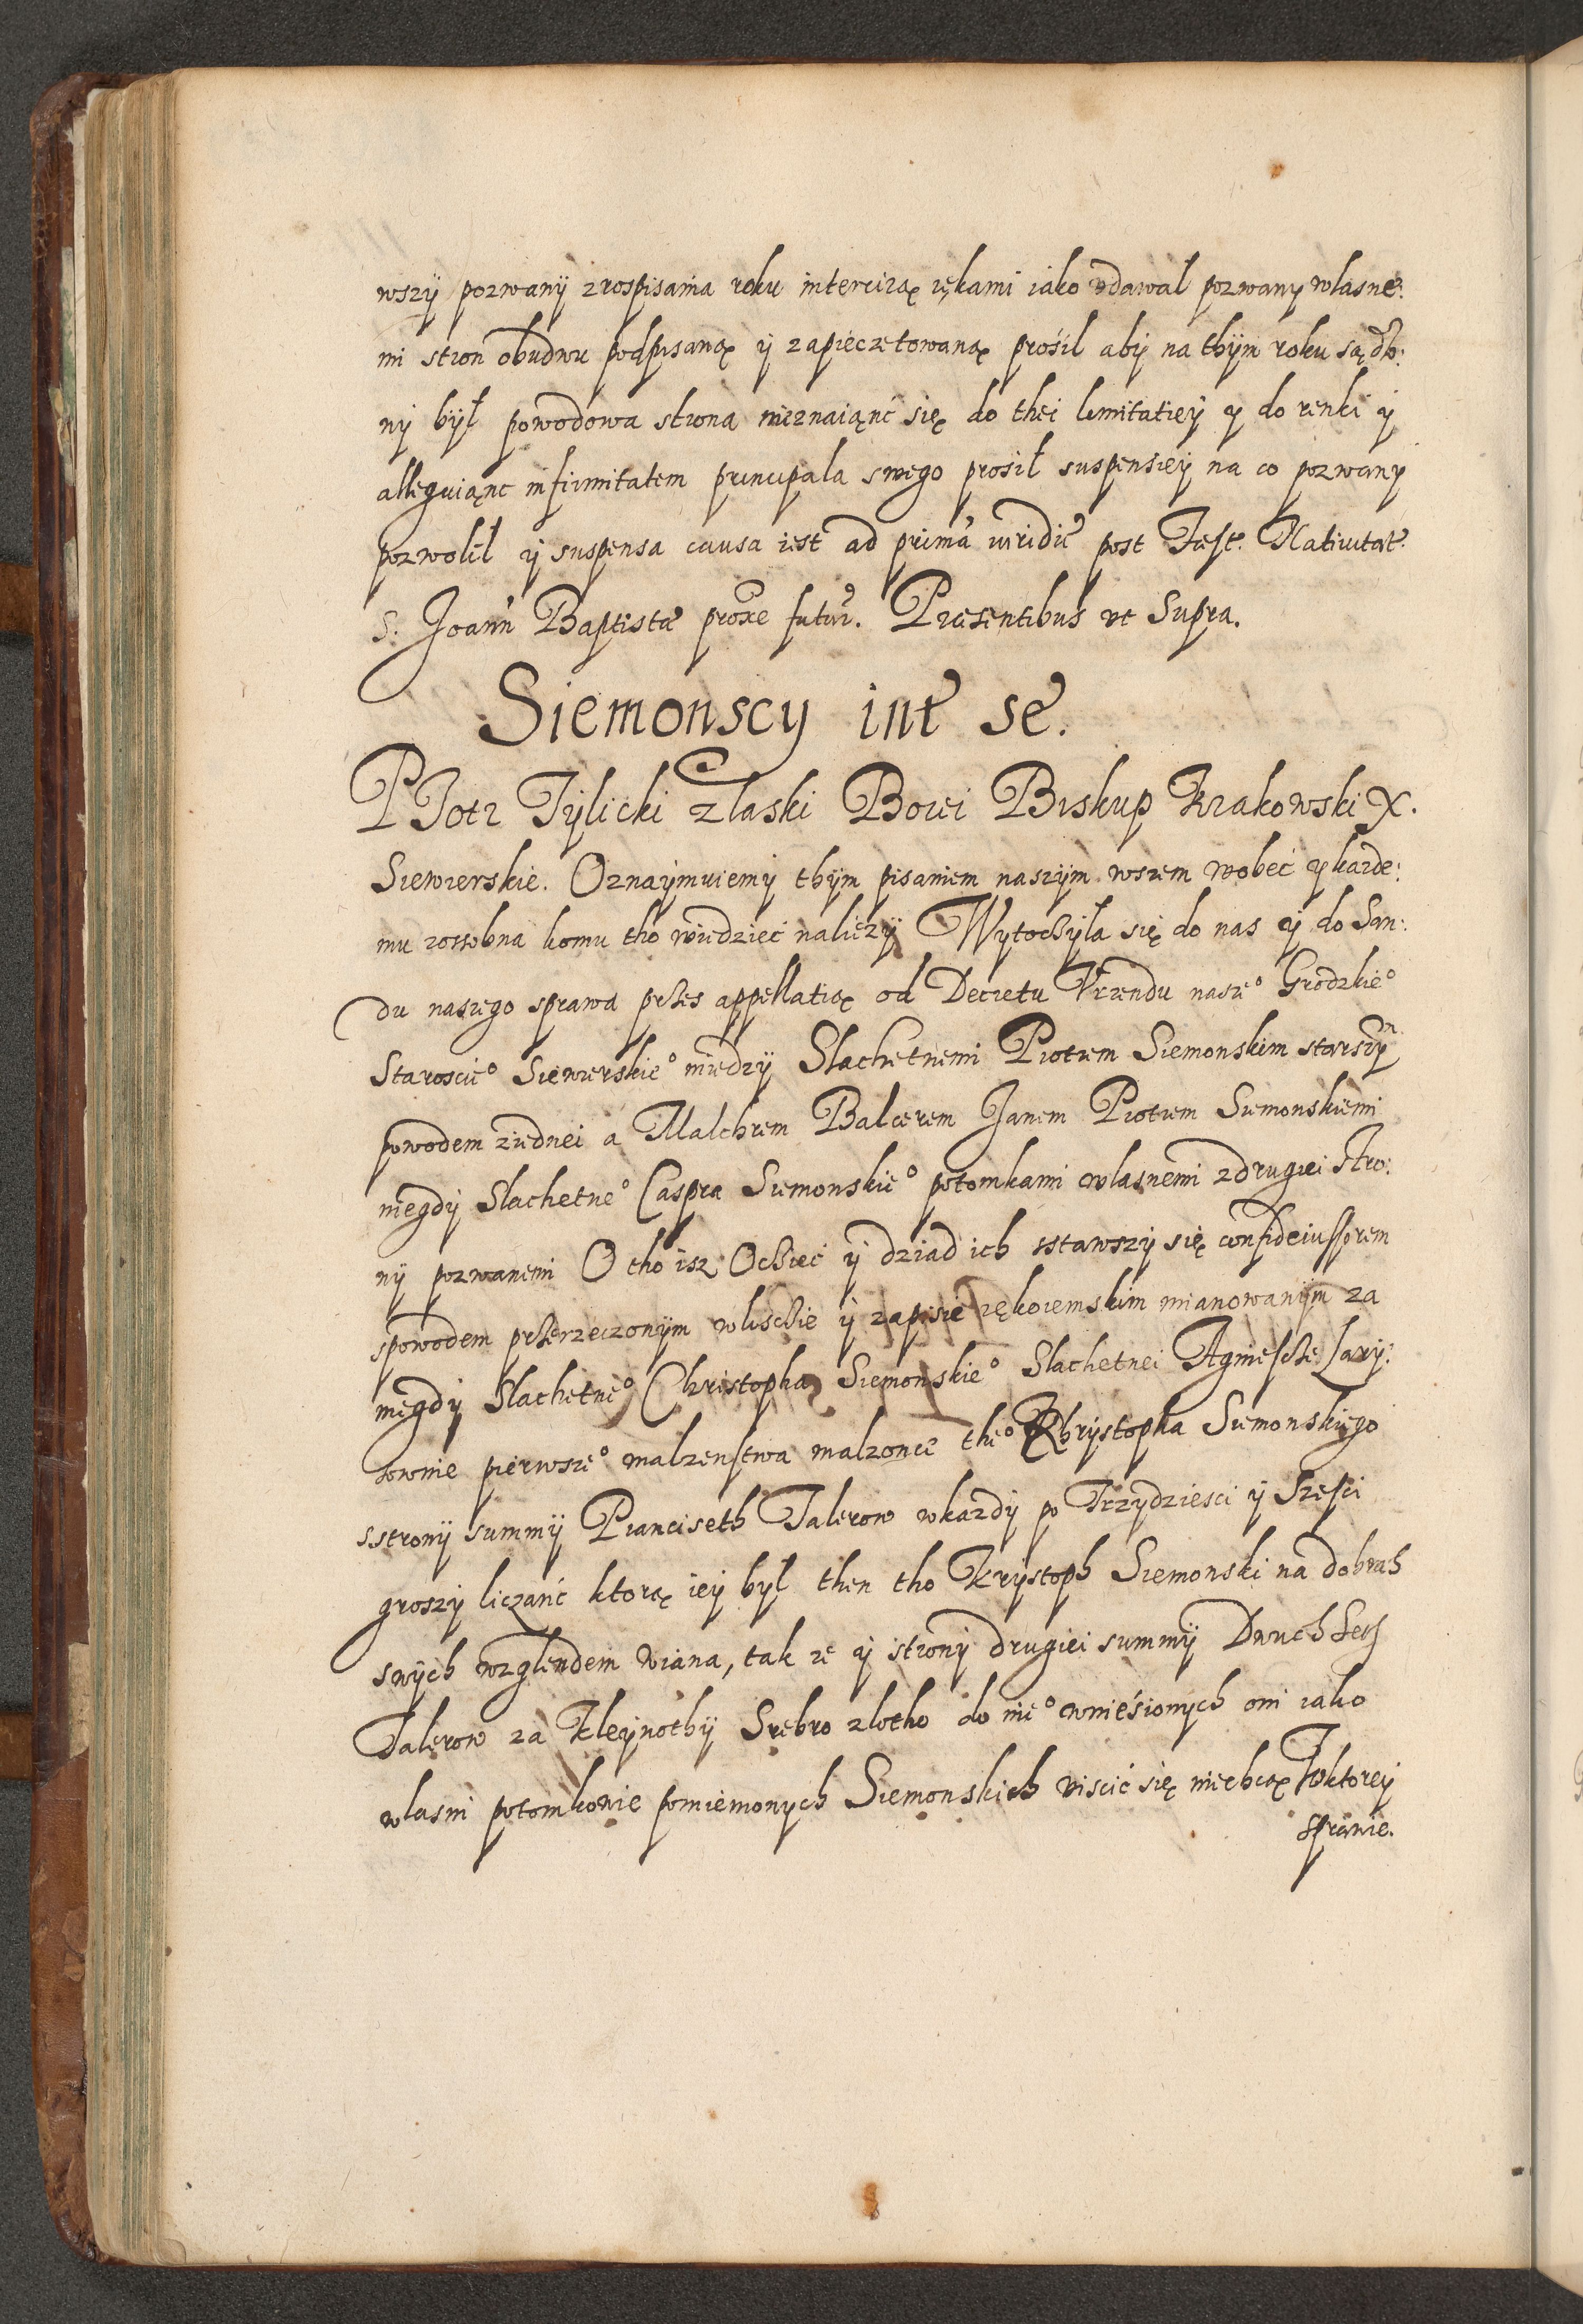 wszÿ pozwanÿ z rospisania roku intercizą rękami iako vdawal pozwany wlasne:
mi stron obudwu podpisaną ÿ zapieczetowaną prosil abÿ na thÿm roku sądzo:
nÿ bÿł powodowa strona nieznaiąnc się do thei limitatieÿ ÿ do renki ÿ
alleguiąnc infirmitatem principala swego prosił suspensieÿ na co pozwany
pozwolił ÿ suspensa causa iest ad primã iuridic̃ post Fest. Natiuitat̃.
S. Joañn Baptistæ prox̃e futur̃. Præsentibus vt supra.
Siemonscy int̃ se.
PJotr Tÿlicki z łaski Bozei Biskup Krakowski X.
Siewierskie. Oznaÿmuiemÿ thÿm pisaniem naszÿm wszem wobec ÿ kazde:
mu zossobna komu tho wiedzieć naliezÿ Wytoczÿla się do nas ÿ do San:
du naszego sprawa przes appellatią od Decretu Vrzendu nasze° Grodzkie°
Staroscie° Siewierskie° miedzÿ Slachetnemi Piotrem Siemonskim starszÿm
powodem ziednei a Malchrem Balcerem Janem Piotrem Siemonskiemi
niegdÿ Slachetne° Caspra Siemonskie° potomkami wlasnemi z drugiei stro:
nÿ pozwanemi O tho isz Ocziec ÿ dziad ich sstawszÿ się confideiussorem
spowodem przerzeczonÿm wlisczie ÿ zapisie rękoiemskim mianowanÿm za
niegdÿ Slachetne° Christopha Siemonskie° Slachetnei Agnieszcze Carÿ:
zownie pierwsze° malzenstwa malzonce the° Chrÿstopha Siemonskiego
sstronÿ summÿ Pianciseth Talerow wkazdÿ po Trzÿdziesci ÿ Szesci
groszÿ liczanc ktorą ieÿ bÿl then tho Krÿstoph Siemonski na dobrach
swÿch wzglendem wiana, tak ze ÿ stronÿ drugiei summÿ Dwuch Set
Talerow za Kleÿnothÿ Srebro zlotho do nie° wniesionÿch oni iako
wlasni potomkowie pomienionych Siemonskich viscić się niechcą Wktoreÿ
sprawie.